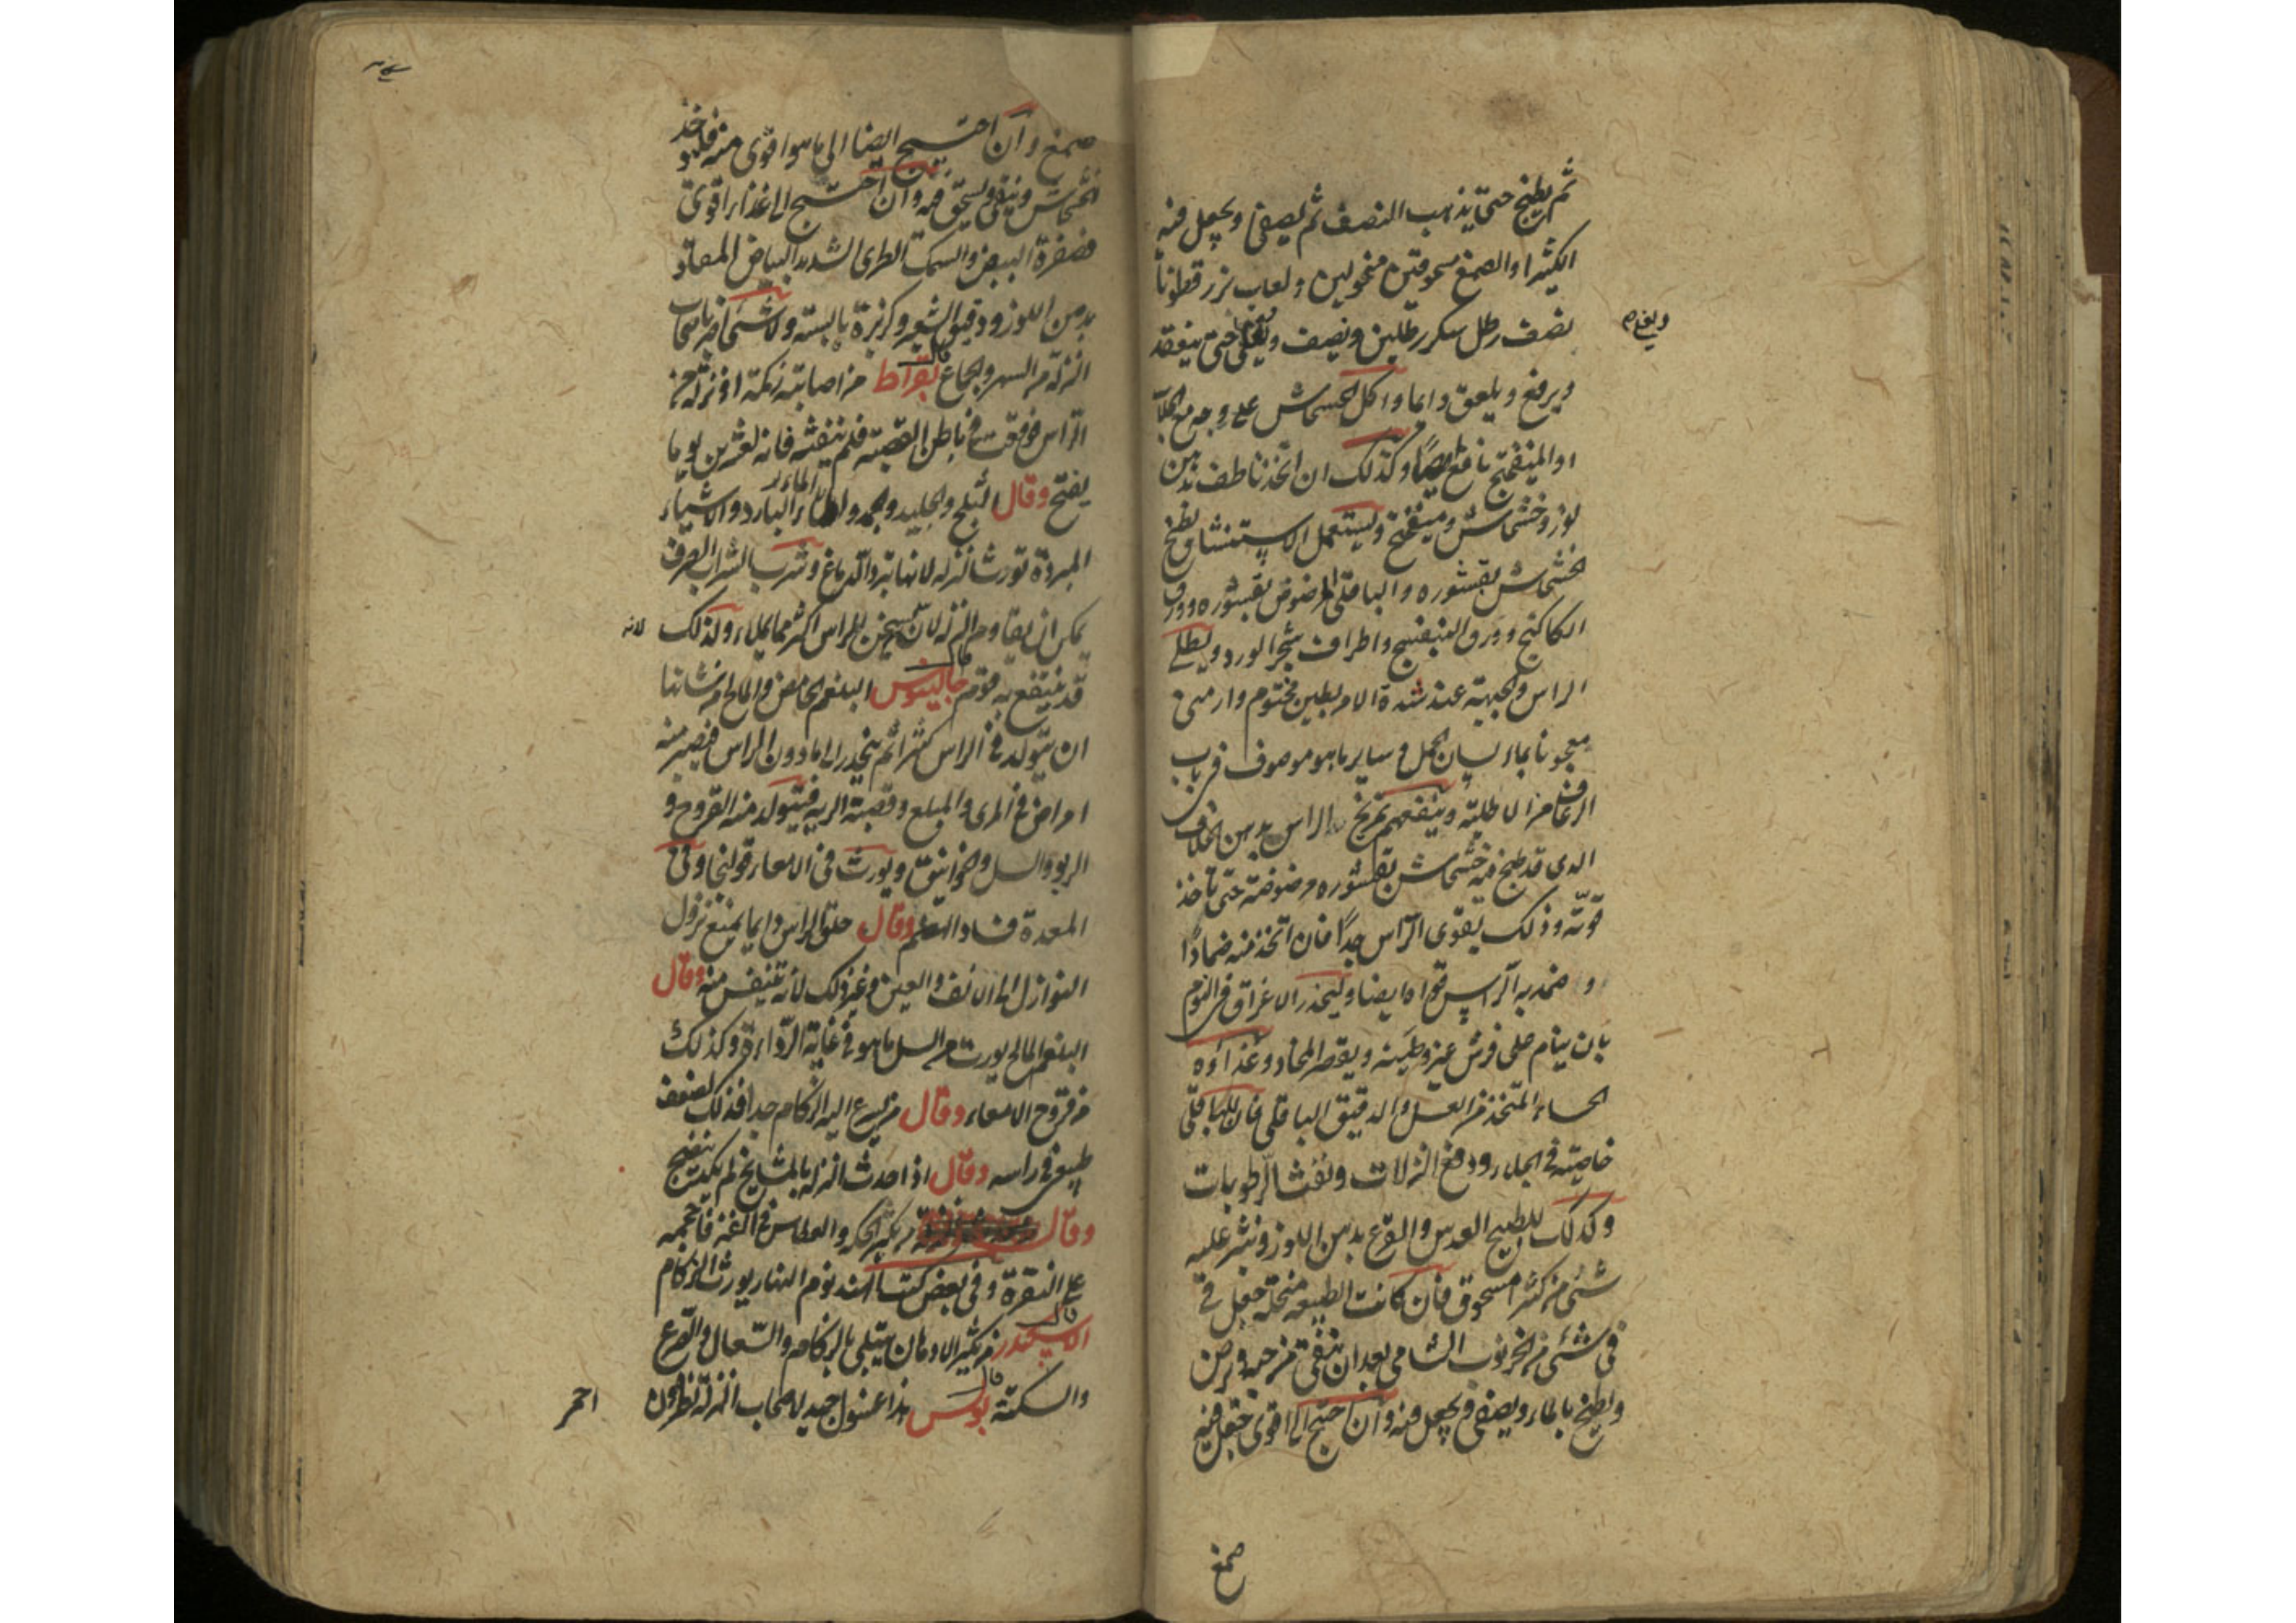 ثم يطبخ حتى يذهب النصف ثم يصفى ويجعل فيه
الكثيرا والصمغ مسحوقين منخولين ولعاب بزر قطونا
نصف رطل سكر رطلين ونصف ويغلى حتى ينعقد
ويرفع ويلعق دايما واكل الخشخاش على وجه مع الجلاب
او الميفختج نافع ايضا وكذلك ان اتخذ ناطف بدهن
لوز وخشخاش وميفختج وليستعمل الاستنشاق بطبخ
الخشخاش بقشوره والباقلى المرضوض بقشوره وورق
الكاكنج وورق البنفسج واطراف شجر الورد ويطلى
الراس والجبهة عند شدة الامر بطين مختوم وارمنى
معجونا بماء لسان الحمل وساير ما هو موصوف فى باب
الرعاف من الاطلية وينفعهم تمريخ الراس بدهن الخلاف
الدى قد طبخ فيه خشخاش بقشوره مرضوضة حتى تاخذ
قوته وذلك يقوى الراس جدا فان اتخذ منه ضمادا
و ضمد به الراس قواه ايضا وليحذر الاغراق فى النوم
بان ينام على فرش غير وطية ويقصر المخاد وغذاؤه
الحساء المتخذ من العسل والدقيق الباقلى فان للباقلى
خاصية فى الجلاء ودفع النزلات ونفث الرطوبات
وكذلك للطبيخ العدس والقرع بدهن اللوز ونثر عليه
شئ من كثيرا مسحوق فان كانت الطبيعه منحله جعل فى
فى شئ من الخرنوب الشامى بعد ان ينقى من حبه ويرض
ويطبخ بالماء ويصفى ويجعل فيه وان احتيج الى اقوى جعل فيه
صمغ
صمغ وان احتيج ايضا الى ما هو اقوى منه فليؤخذ
خشخاش وينقى ويسحق فيه وان احتيج الى غذاء اقوى
فصفرة البيض والسمك الطرى الشديد البياض المصاد
بدهن اللوز ودقيق الشعير وكزبرة يابسة ولا شئ اضر باصحاب
النزلة من السهر والجماع قال بقراط من اصابته زكمة او نزلة من
الراس فوقعت فى باطن القصبة فلم ينفثه فانه لعشرين يوما
يفتح وقال الثلج والجليد والجمد والماء البارد والاشياء
المبردة تورث النزله لانها تبرد الدماغ وشرب الشراب الصرف
يمكن ان يقاوم النزله لان تسخين الراس اكثر مما يملاء ولذلك
لانه
قد ينتفع به قوم قال جالينوس البلغم الحامض والمالح من شانها
ان يتولد فى الراس كثيرا ثم ينحدر الى ما دون الراس فيصير منه
امراض فى المرى والمبلع وقصبة الريه فيتولد منه القروح و
الربو والسل والخوانيق ويورث فى الامعاء قولنجا وفى
المعدة فساد الهضم وقال حلق الراس دايما يمنع نزول
النوازل الى الانف والعين وغير ذلك لانه تنفس منه وقال
البلغم المالح يورث من السل ما هو فى غاية الرداءة وكذلك
من قروح الامعاء وقال من يسرع اليه الزكام جدا فذلك لضعف
طبيعى فى راسه وقال اذا حدث النزله بالمشايخ لم يكد ينضج
وقال من يكثر الحك والعطاس فى الغز فاحجمه
على النقرة وفى بعض كتب الهند نوم النهار يورث الزكام
قال الاسكندر من يكثر الادهان يبتلى بالزكام والسعال والصرع
والسكتة قال بولس هذا غسول جيد لاصحاب النزلة نطرون
احمر